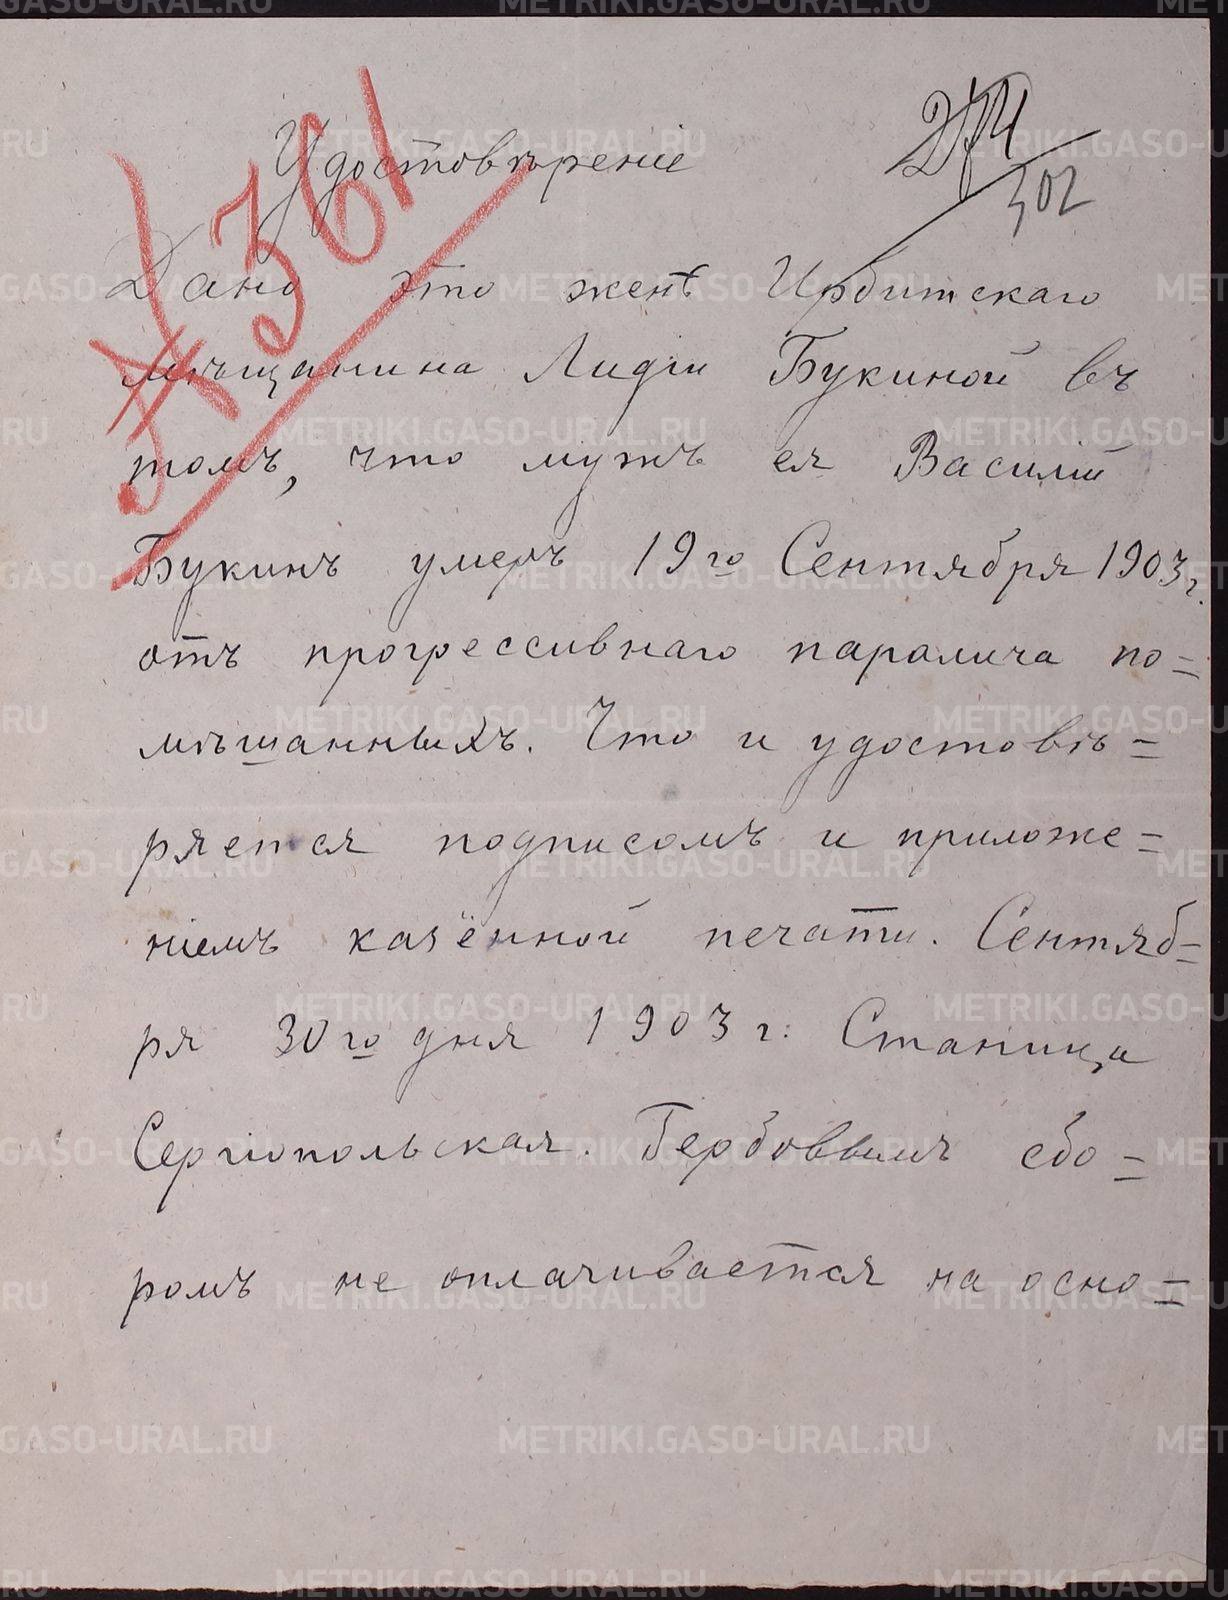 302
№ 361
Удостовѣреніе
Дано это женѣ Ирбитскаго
мѣщанина Лидіи Букиной въ
томъ, что мужъ ея Василій
Букинъ умеръ 19го Сентября 1903 г.
отъ прогрессивнаго паралича по=
мѣшанныхъ. Что и удостовѣ=
ряется подписомъ и приложе=
ніемъ казённой печати. Сентяб=
ря 30го дня 1903 г: Станица
Сергіопольская. Гербоввымъ сбо=
ромъ не оплачивается на осно=
METRIKI.GASO-URAL.RU